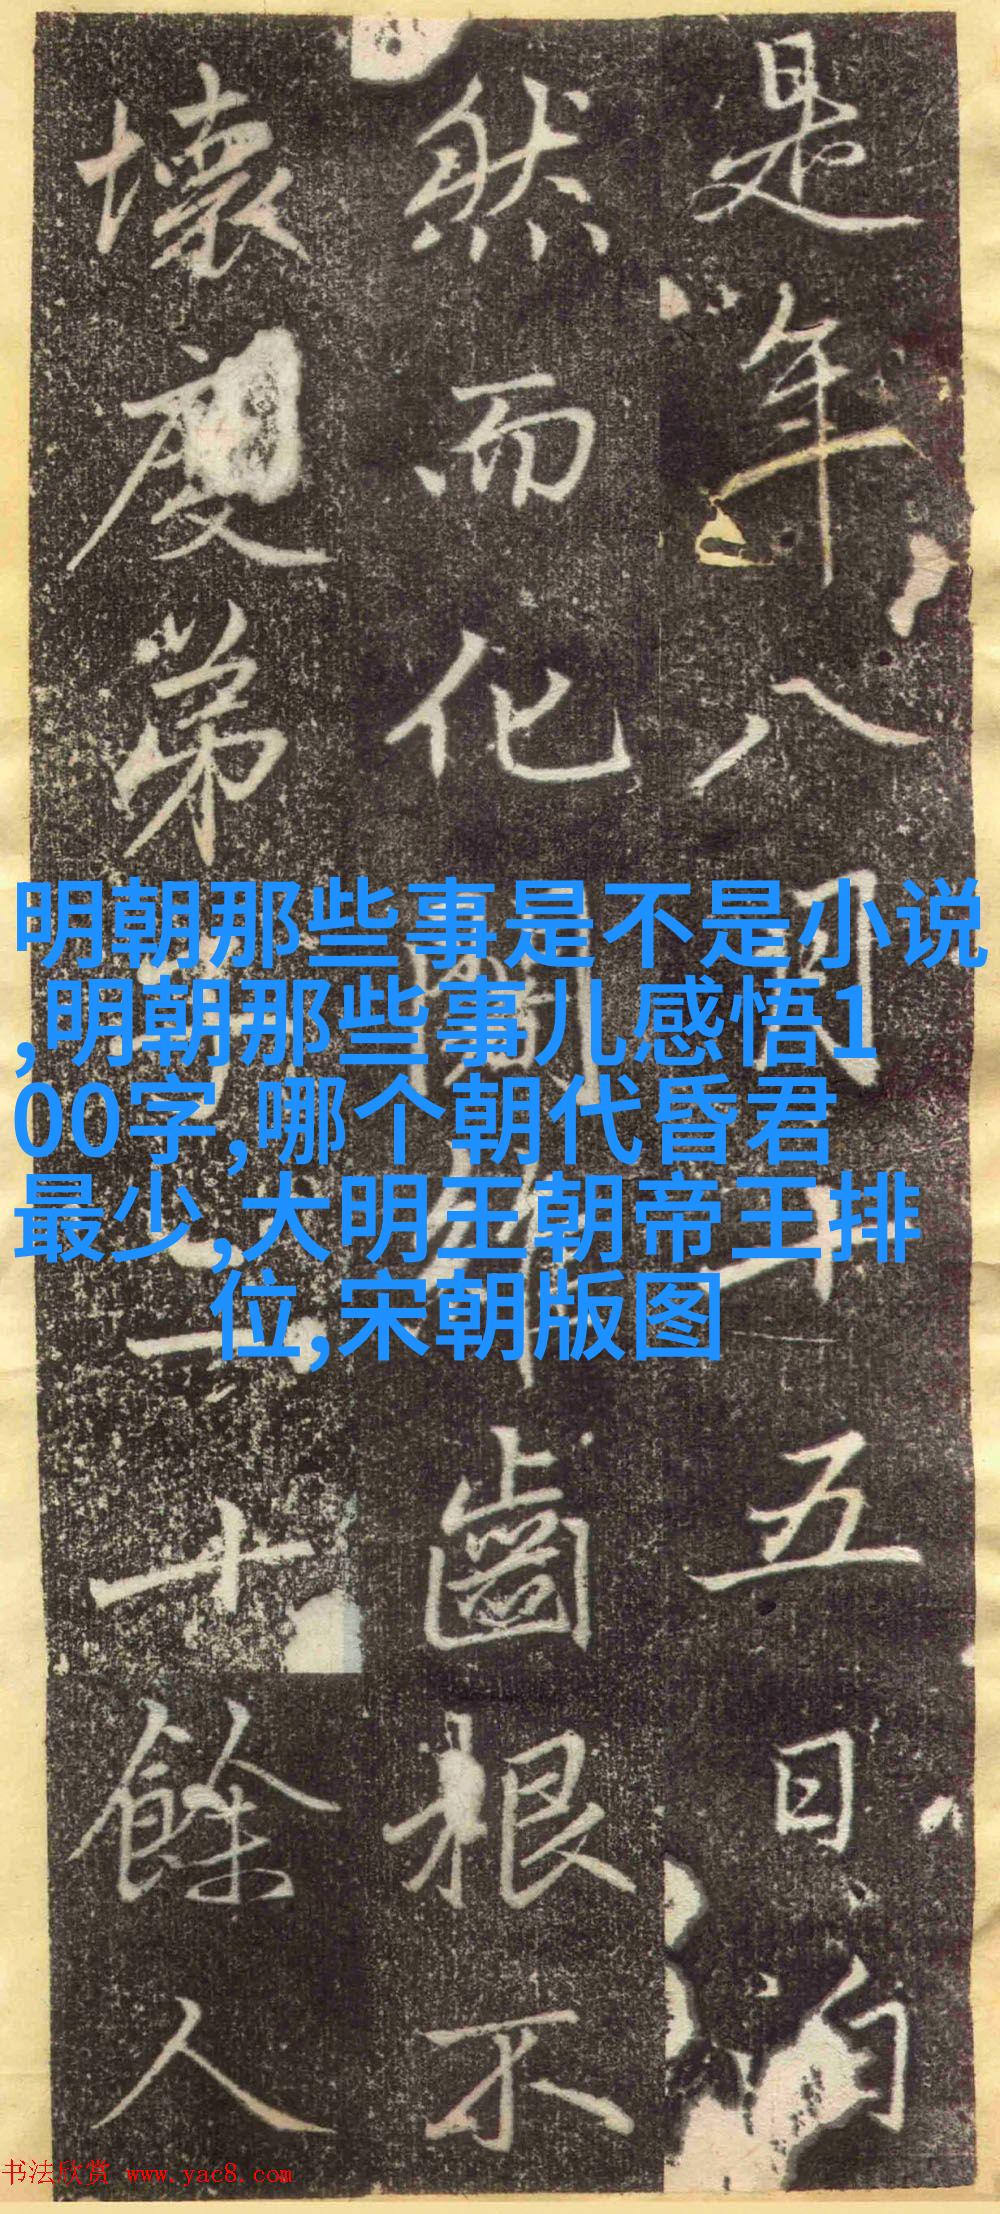 是年八月十五日自
然而化闍維齒根不
壞度弟子二十餘人
明朝那些事是不是小说
,明朝那些事儿感悟1
00字,哪个朝代昏君
最少,大明王朝帝王排
位,宋朝版图
书法欣赏 www.yac8.com